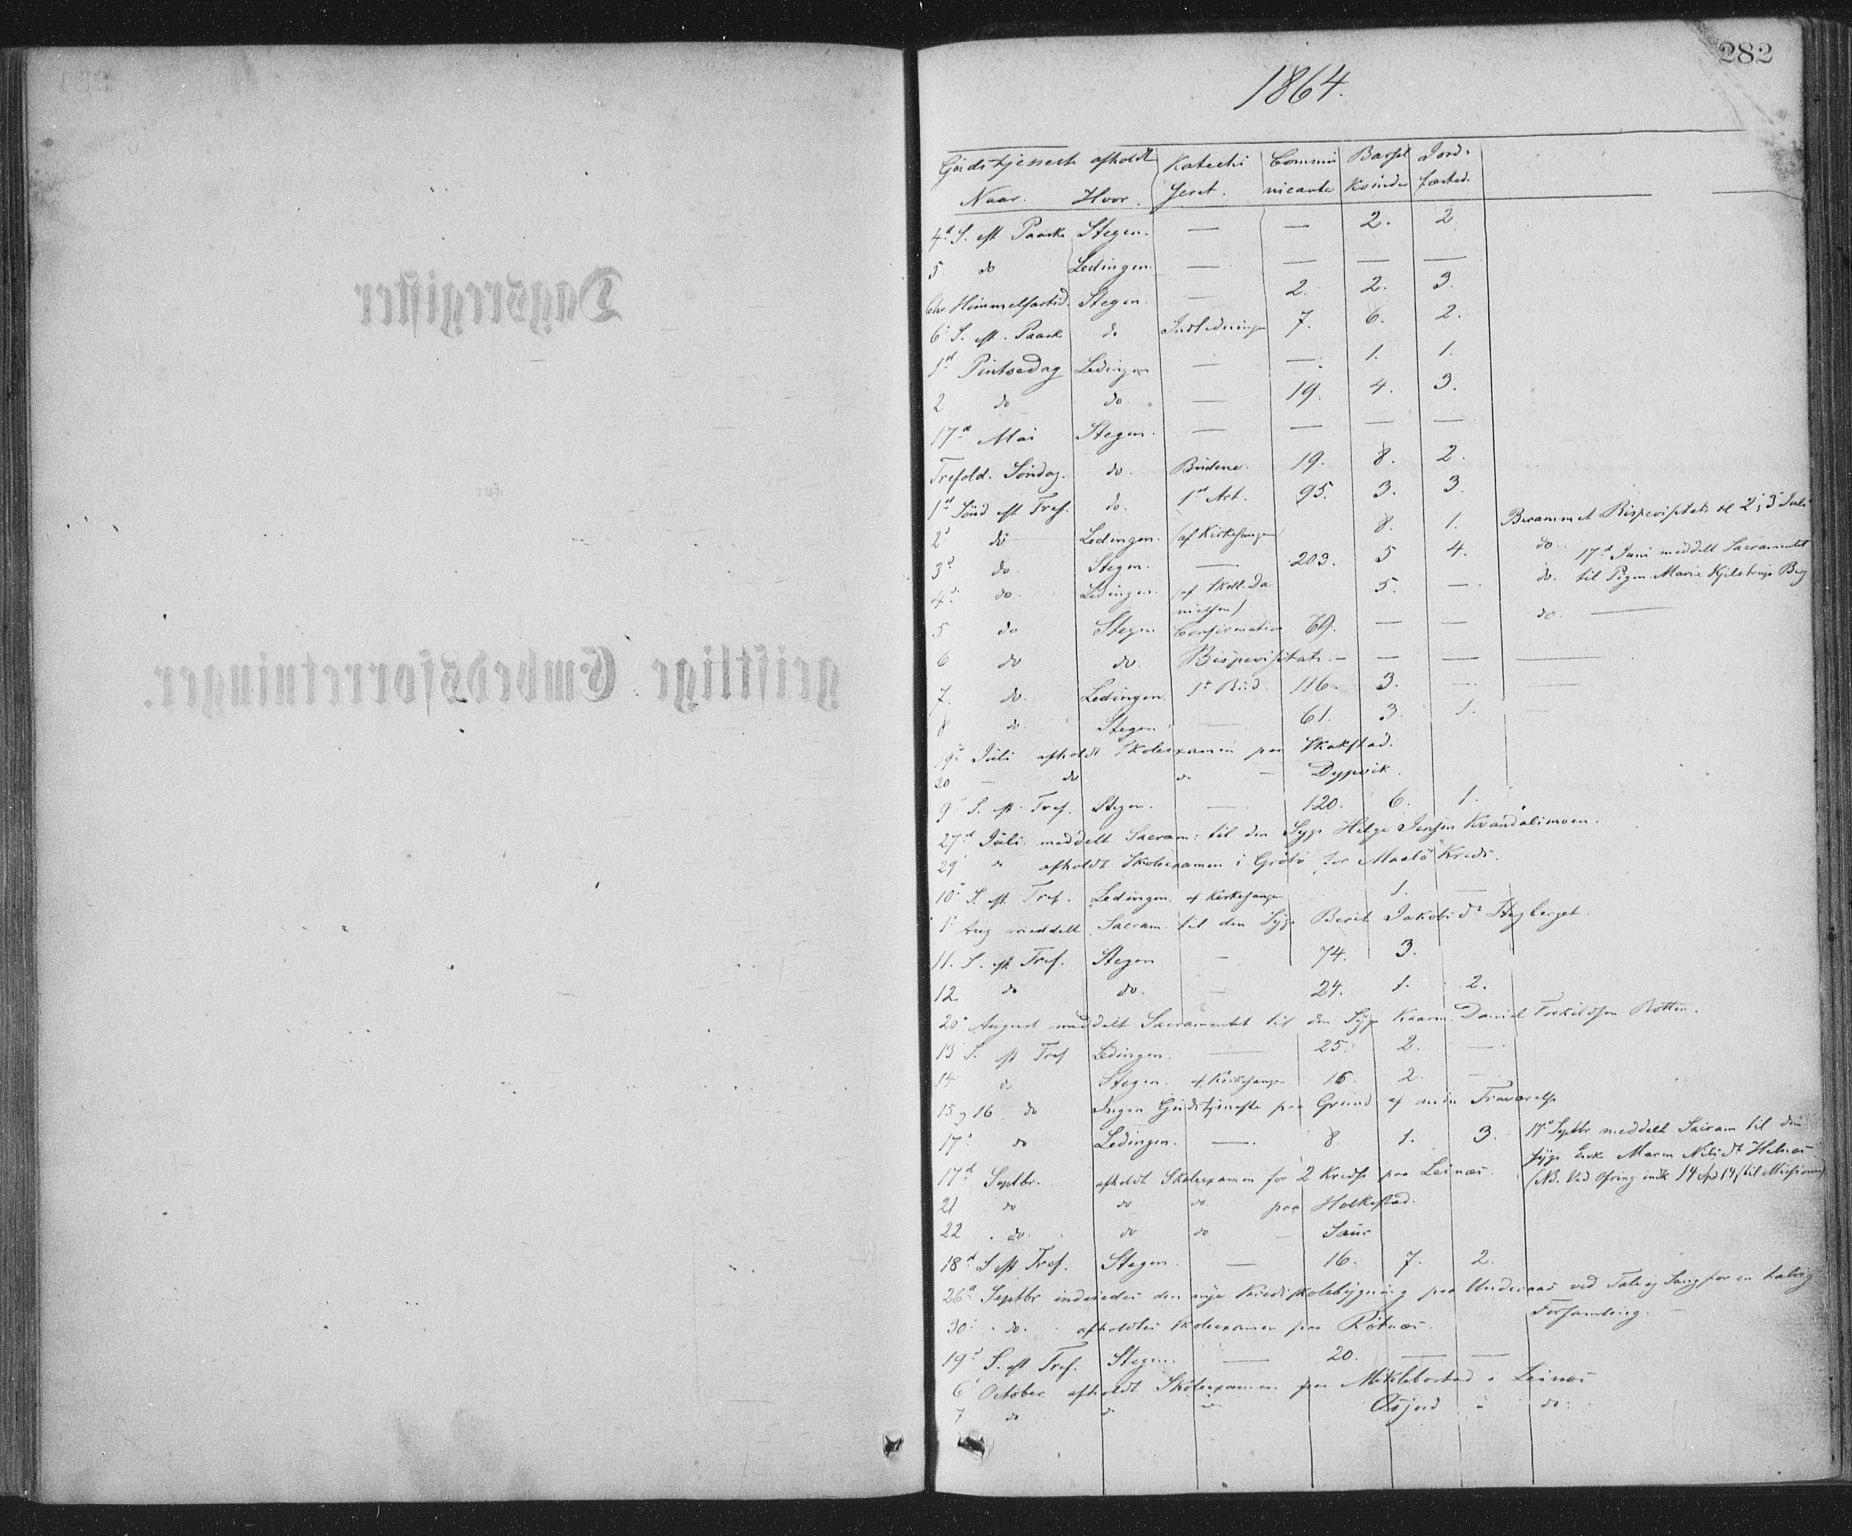 282
1864.
Gudstjeneste afholdt Katechi Commu Barsel Jord-
Naar. Hvor. seret. nicanter Kvinder fæsted.
4d S. eft Paaske Stegen. — — 2. 2
5. do Ledingen. — — — —
Chr. Himmelfartsd. Stegen — 2. 2. 3.
6 S. eft. Paask do Indledningen 7. 6. 2.
1st Pintsedag Ledingen — — 1. 1.
2 do do. — 19. 4. 3.
17d Mai Stegen. — — — —
Trefold. Søndag. do. Budene. 19. 8. 2.
1st Sønd eft Tref. do. 1st Art. 95. 3. 3.
2d do Ledingen. (af Kirkesanger 8. 1. Berammet Bispevisitats til 2 i 3 Juli
3d do. Stegen. — 203. 5 4. do. 17d Juni meddelt Sacramentet
4d. do. Ledingen. (af Skoll. Da 5. — do. til Pigen Marie Kjelstrup Berg
nielsen)
5 do Stegen Confirmation 69. — — do. —
6 do do. Bispevisitats. — — — —
7. do. Ledingen. 1st Bud. 116. 3. — —
8 do. Stegen — 61. 3. 1. —
19d Juli afholdt Skoleexamen paa Skakstad.
20 — do do — Dypvik.
9d S. eft. Tref. Stegen. — 120. 6. 1.
27d Juli meddelt Sacram: til den Syge Helge Jensen Kvandalimoen.
29 " afholdt Skoleexamen i Grøtø for Maalø Kreds.
10d S. eft. Tref. Ledingen. af Kirkesanger 1. —
1 Aug meddelt Sacram. til den Syge Berit Jakobsdr
11. S. eft Tref. Stegen — 74. 3.
12 do do. — 24. 1. 2.
20d August meddelt Sacramentet til den Syge Daniel Torkildsen
13 S. eft Tref Ledingen. — 25. 2. —
14 d Stegen. af Kirkesanger 16. 2. —
15 og 16 do Ingen Gudstjeneste paa Grund af min Fraværelse
17d do Ledingen. — 8. 1. 3. 17d Septbr meddelt Sacram til den
syge Enke Maren Nilsdr Helnæs
17d Septbr. afholdt Skoleexamen for 2 Kredse paa Leinæs. (NB. Ved Ofring indk 14 Spd 14 f til Missionen)
21 do do do paa Holkestad.
22 . do. do do — Saur
18d S eft Tref. Stegen. — 16. 7. 2.
26d Septbr indviedes den nye Kredsskolebygning paa ved Tale og Sang for en talrig
Forsamling. —
30 . do. afholdtes Skoleexamen paa Røtnæs.
19d S. eft Tref. Stegen. — 20. — —
6 October afholdt Skoleexamen paa Miklebostad i Leinæs
7 do d do Åsjord i do.